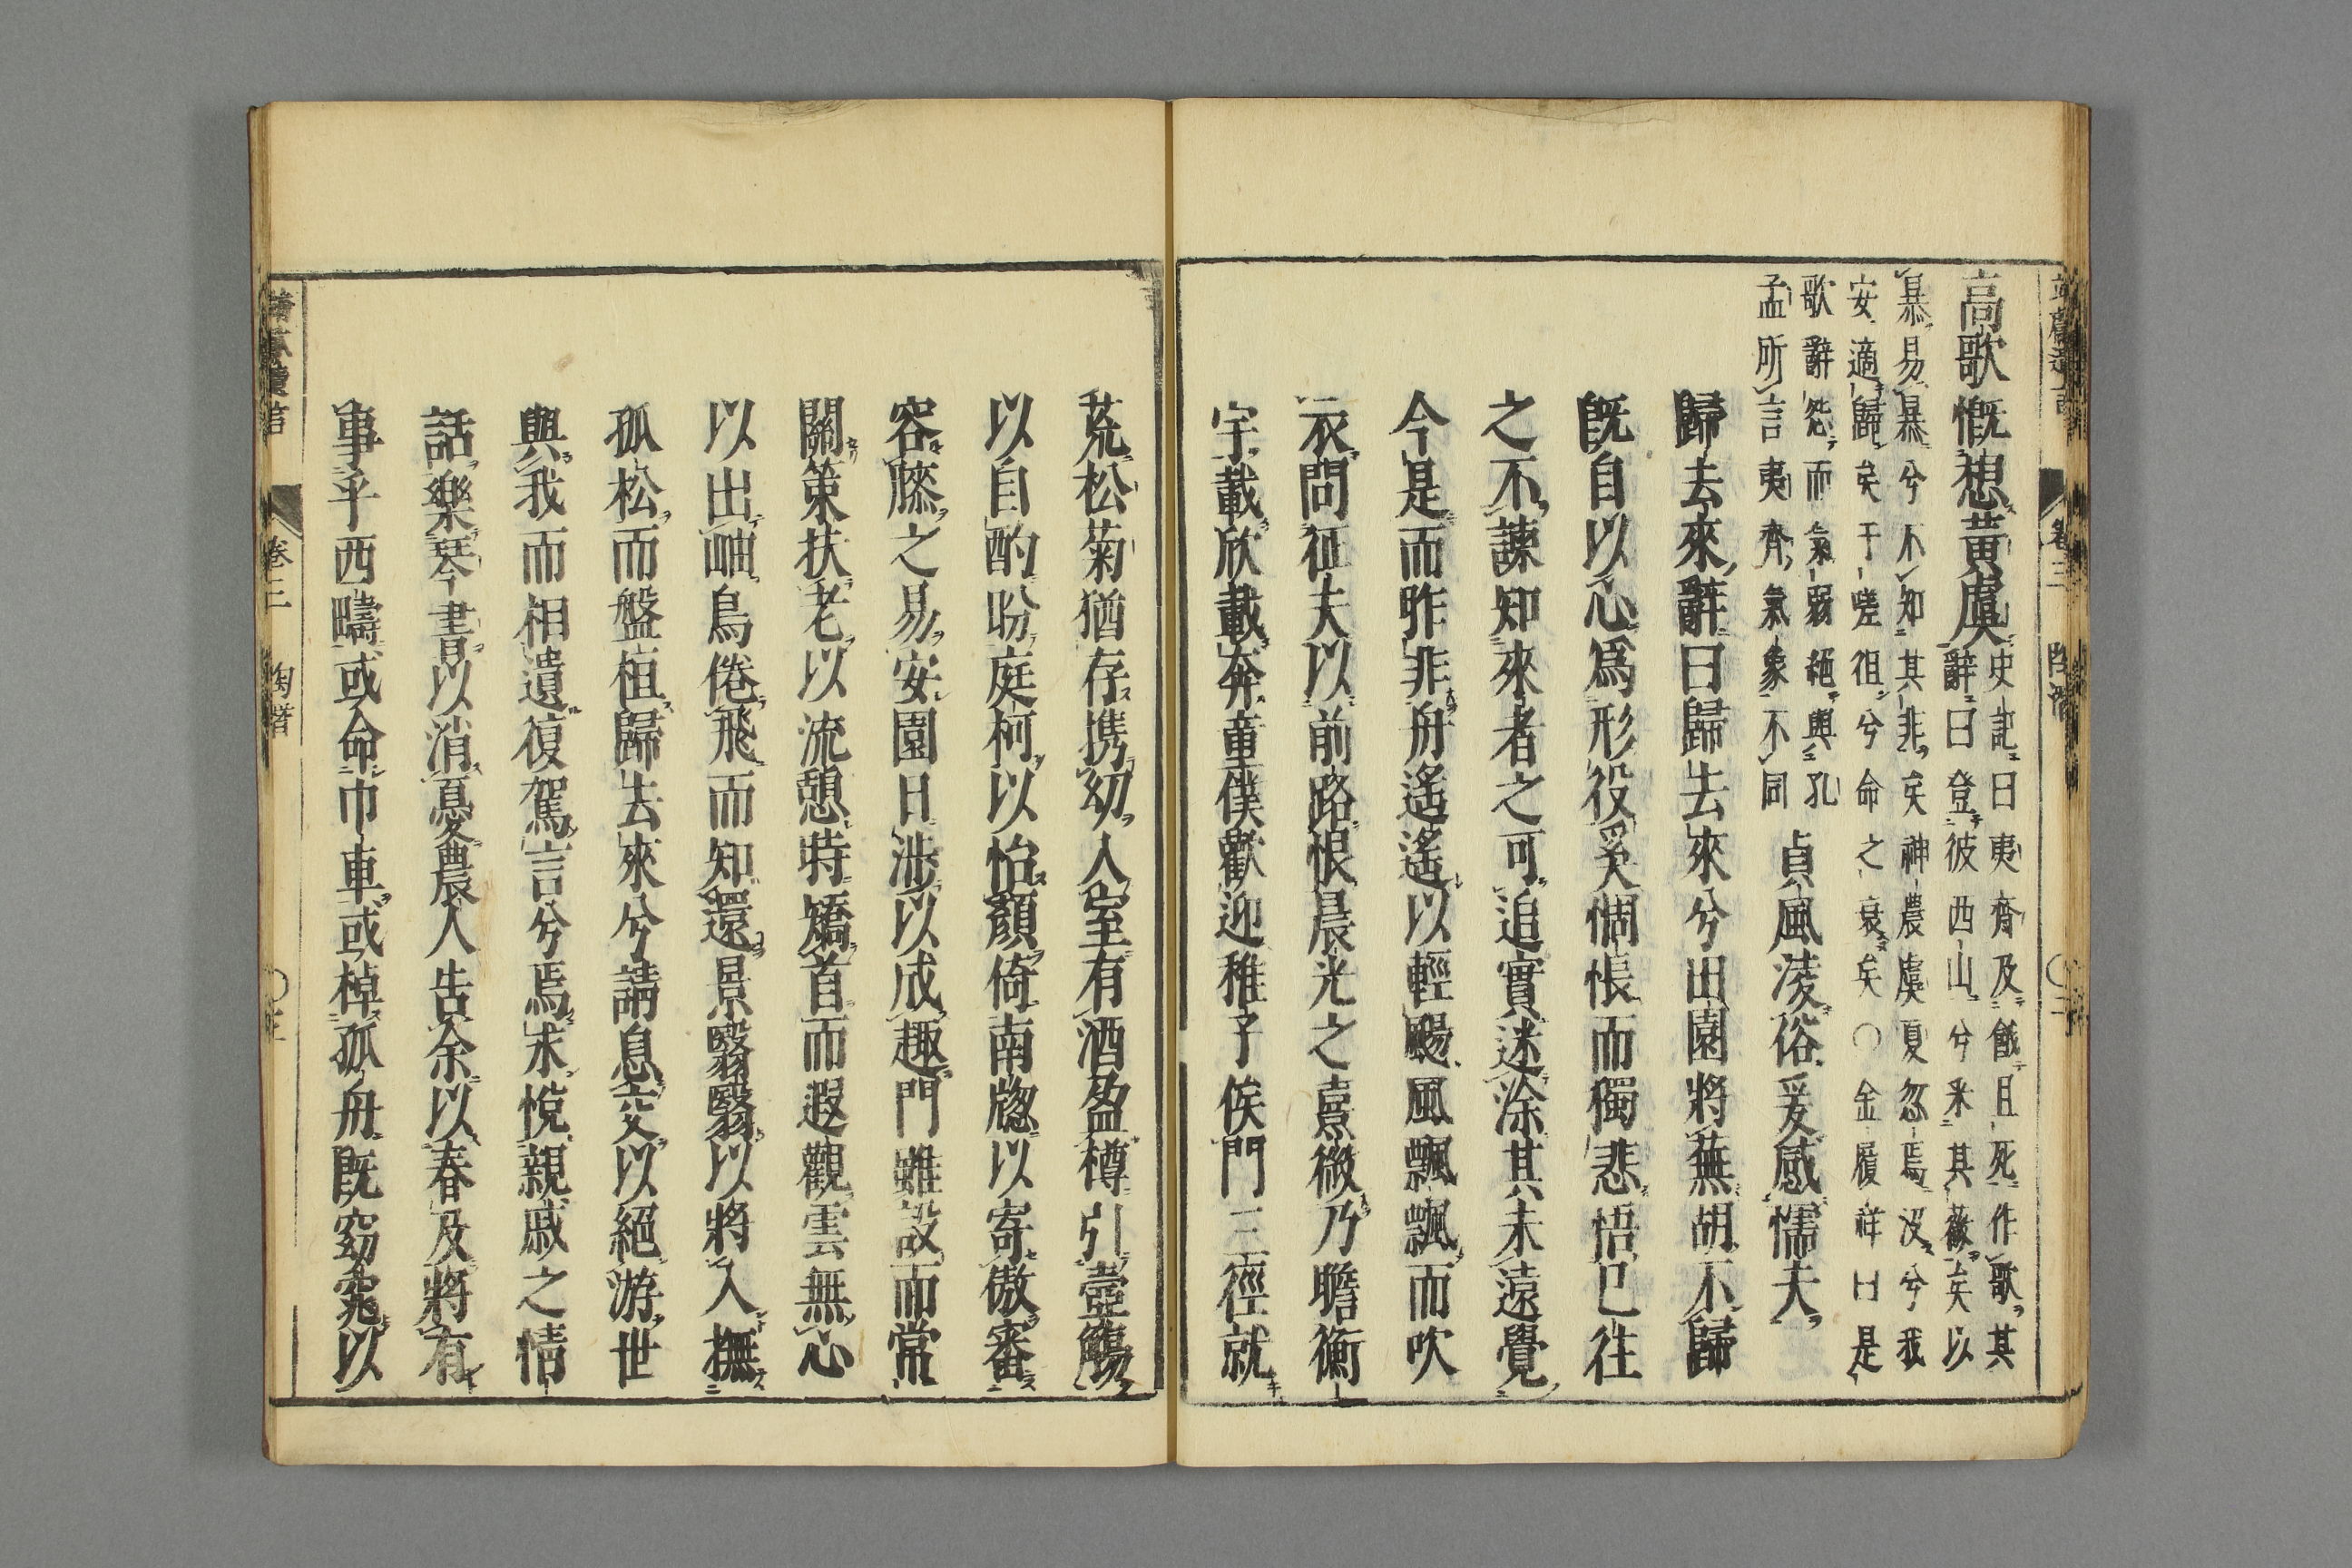 卷三 陶潜
高歌慨想黃虞
史記曰夷齊及餓且死作歌其
辭曰登彼西山兮釆其薇矣以
暴易暴兮不知其非矣神農虞夏忽焉沒兮我
安適歸矣于嗟徂兮命之衰矣〇金履祥曰是
歌辭怨而氣弱絕與孔
孟所言夷齊氣象不同
貞風淩俗爰感懦夫
歸去來辭曰歸去來兮田園將蕪胡不歸
既自以心爲形役奚惆悵而獨悲悟已往
之不諫知來者之可追實迷塗其未遠覺
今是而昨非舟遙遙以輕颺風飄飄而吹
衣問征夫以前路恨晨光之熹微乃瞻衡
宇載欣載奔童僕歡迎稚子候門三徑就
荒松菊猶存携幼入室有酒盈樽引壺觴
以自酌盼庭柯以怡顏倚南牕以寄傲審
容膝之易安園日涉以成趣門雖設而常
關策扶老以流憩時矯首而遐觀雲無心
以出岫鳥倦飛而知還景翳翳以將入撫
孤松而盤桓歸去來兮請息交以絕游世
與我而相遺復駕言兮焉求悅親戚之情
話樂琴書以消憂農人告余以春及將有
事乎西疇或命巾車或棹孤舟既窈窕以